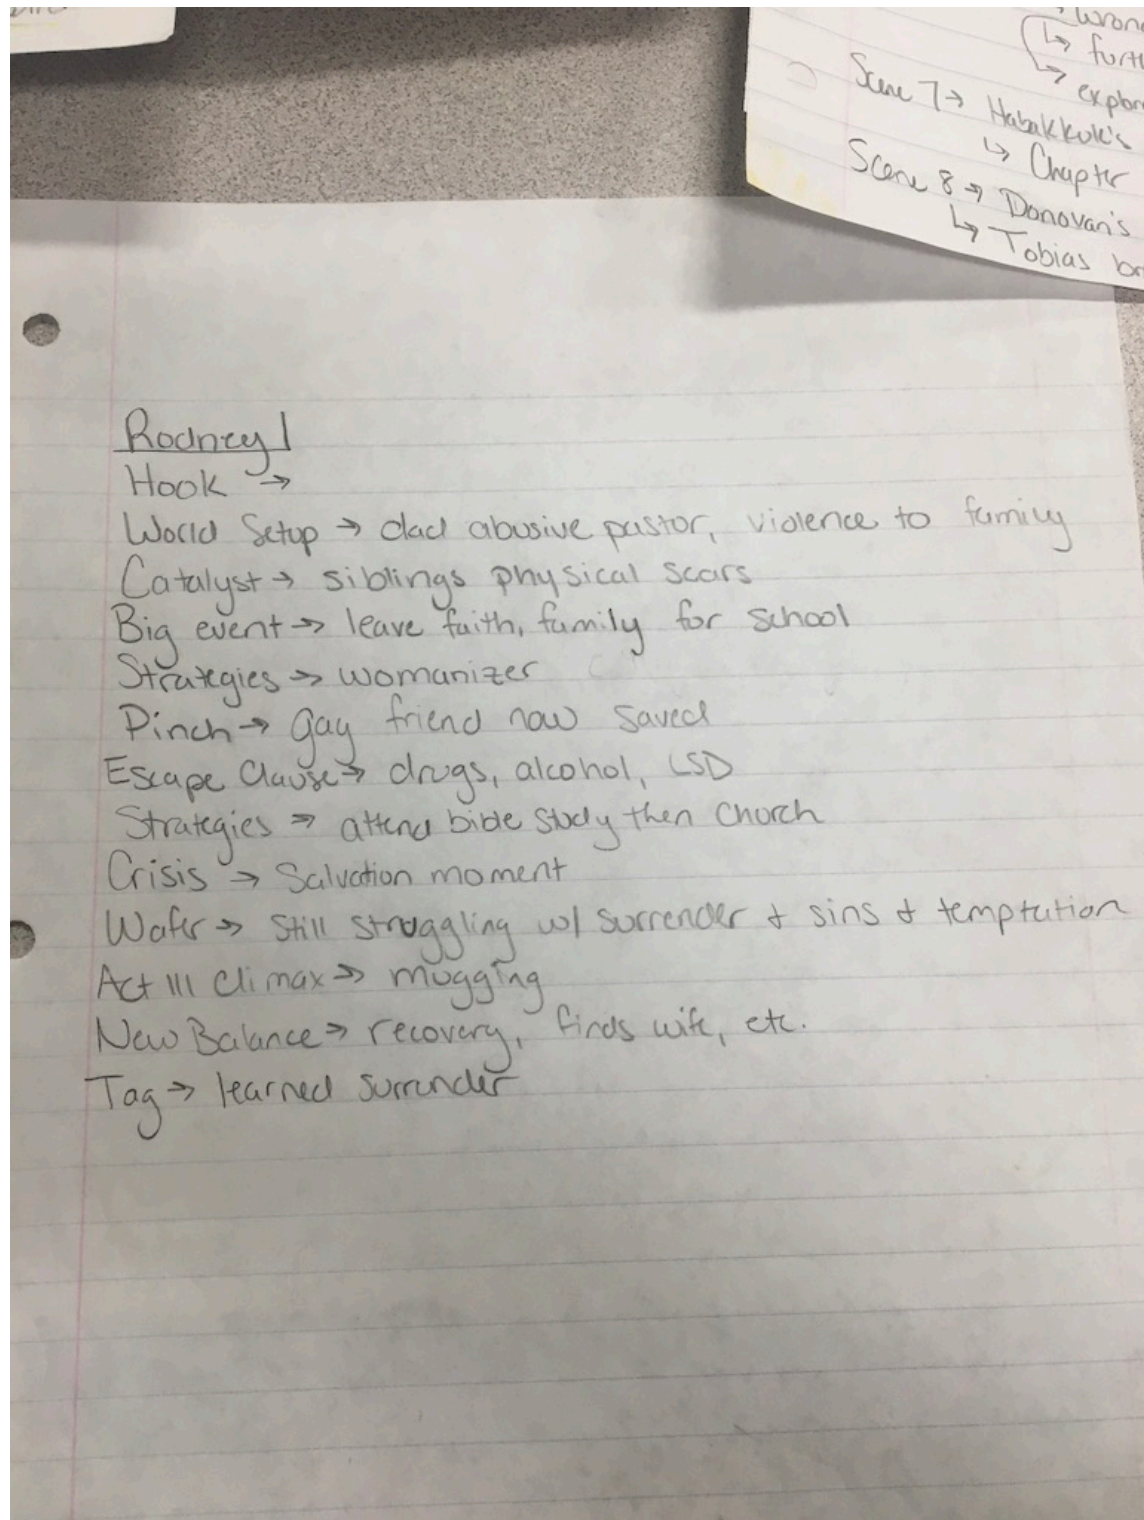 wron
↳ furth
↳ explor
Scene 7 → Habakkuk's
↳ Chapter
Scene 8 → Donovan's
↳ Tobias br
Rodney 1
Hook →
World Setup → dad abusive pastor, violence to family
Catalyst → siblings physical scars
Big event → leave faith, family for school
Strategies → womanizer
Pinch → gay friend now saved
Escape Clause → drugs, alcohol, LSD
Strategies → attend bible study then church
Crisis → Salvation moment
Wafer → still struggling w/ surrender + sins + temptation
Act III Climax → mugging
New Balance → recovery, finds wife, etc.
Tag → learned surrender